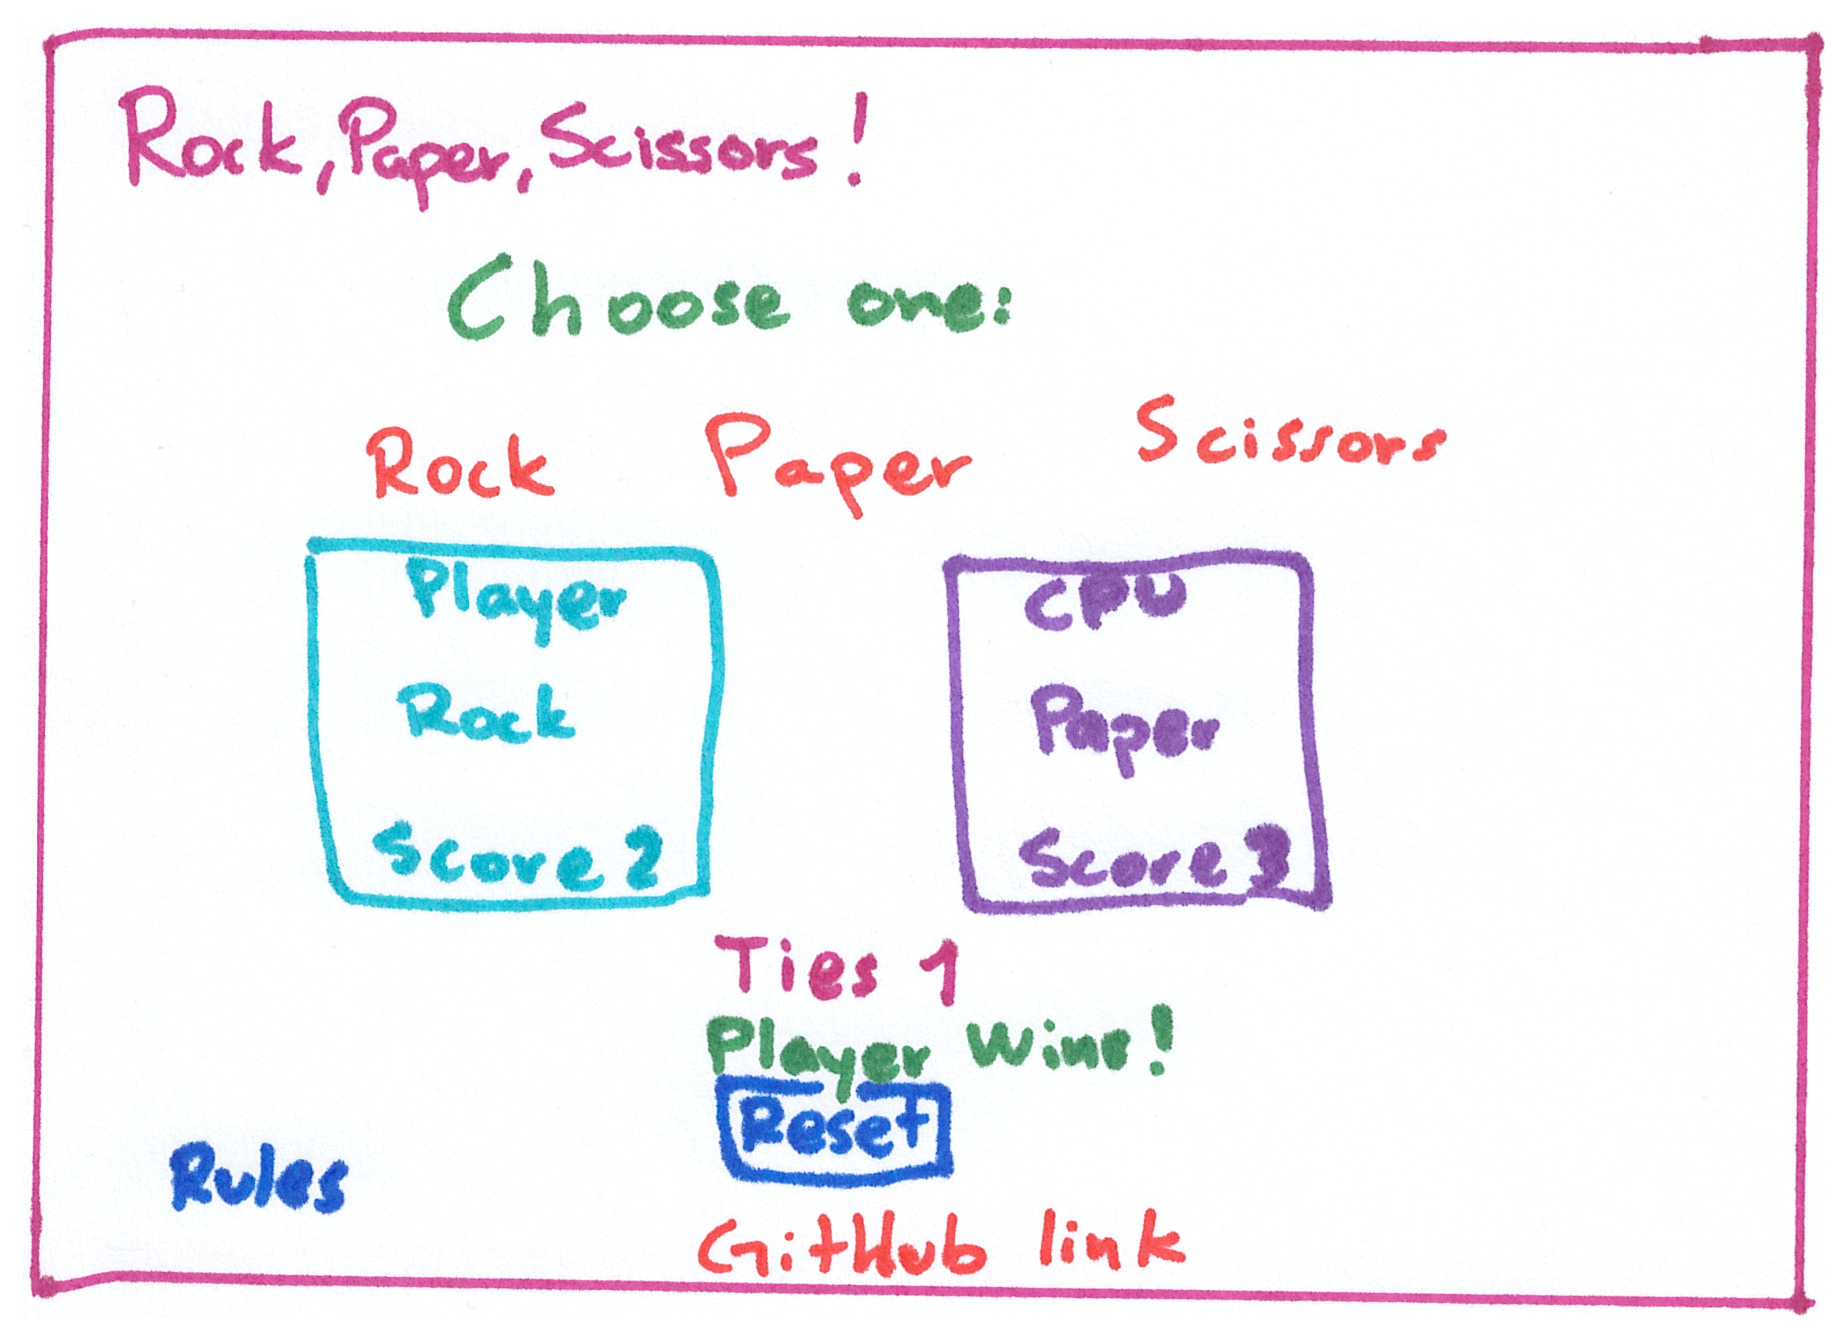 Rock, Paper, Scissors!
Choose one:
Rock Paper Scissors
Player
Rock
Score 2
CPU
Paper
Score 3
Ties 1
Player Wins!
Reset
Rules
GitHub link